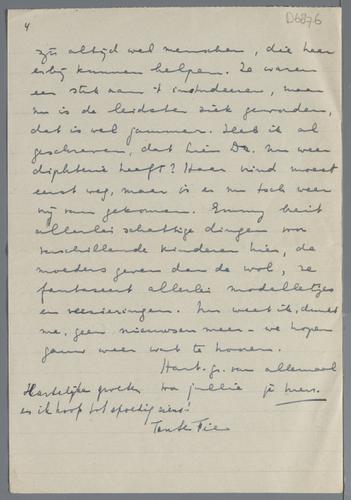 4
D6876
zijn altijd wel menschen, die haar
erbij kunnen helpen. Ze waren
een stuk aan 't instudeeren, maar
nu is de leidster ziek geworden,
dat is wel jammer. Heb ik al
geschreven, dat hier Do. nu weer
diphterie heeft? Haar vriend moest
eerst weg, maar is er nu toch weer
bij gekomen. Emmy breit
allerlei schattige dingen voor
verschillende kinderen hier, de
moeders geven dan de wol, ze
fantaseert allerlei modelletjes
en versieringen. Nu weet ik, dunkt
me, geen nieuws meer - we hopen
gauw weer wat te hooren.
Hart. gr. van allemaal
Hartelijke groeten voor jullie je
en ik hoop tot spoedig ziens!
Tante